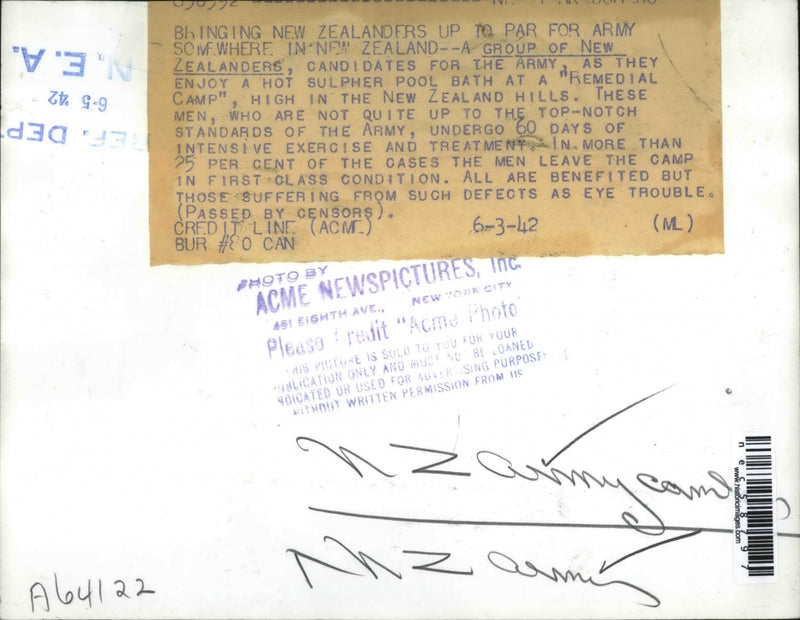 BRINGING NEW ZEALANDERS UP TO PAR FOR ARMY
SOMEWHERE IN NEW ZEALAND--A GROUP OF NEW
ZEALANDERS, CANDIDATES FOR THE ARMY, AS THEY
ENJOY A HOT SULPHER POOL BATH AT A "REMEDIAL
CAMP", HIGH IN THE NEW ZEALAND HILLS. THESE
MEN, WHO ARE NOT QUITE UP TO THE TOP-NOTCH
STANDARDS OF THE ARMY, UNDERGO 60 DAYS OF
INTENSIVE EXERCISE AND TREATMENT. IN MORE THAN
75 PER CENT OF THE CASES THE MEN LEAVE THE CAMP
IN FIRST CLASS CONDITION. ALL ARE BENEFITED BUT
THOSE SUFFERING FROM SUCH DEFECTS AS EYE TROUBLE.
(PASSED BY CENSORS).
CREDIT LINE (ACME) 6-3-42 (ML)
BUR #80 CAN
N.E.A.
6-5-'42
REF. DEPT
PHOTO BY
ACME NEWSPICTURES, Inc.
461 EIGHTH AVE., NEW YORK CITY
Please Credit "Acme Photo"
THIS PICTURE IS SOLD TO YOU FOR YOUR
PUBLICATION ONLY AND MUST NOT BE LOANED
SYNDICATED OR USED FOR ADVERTISING PURPOSES
WITHOUT WRITTEN PERMISSION FROM US
NZ army camp
NZ army
A64122
www.historicimages.com
nec58797